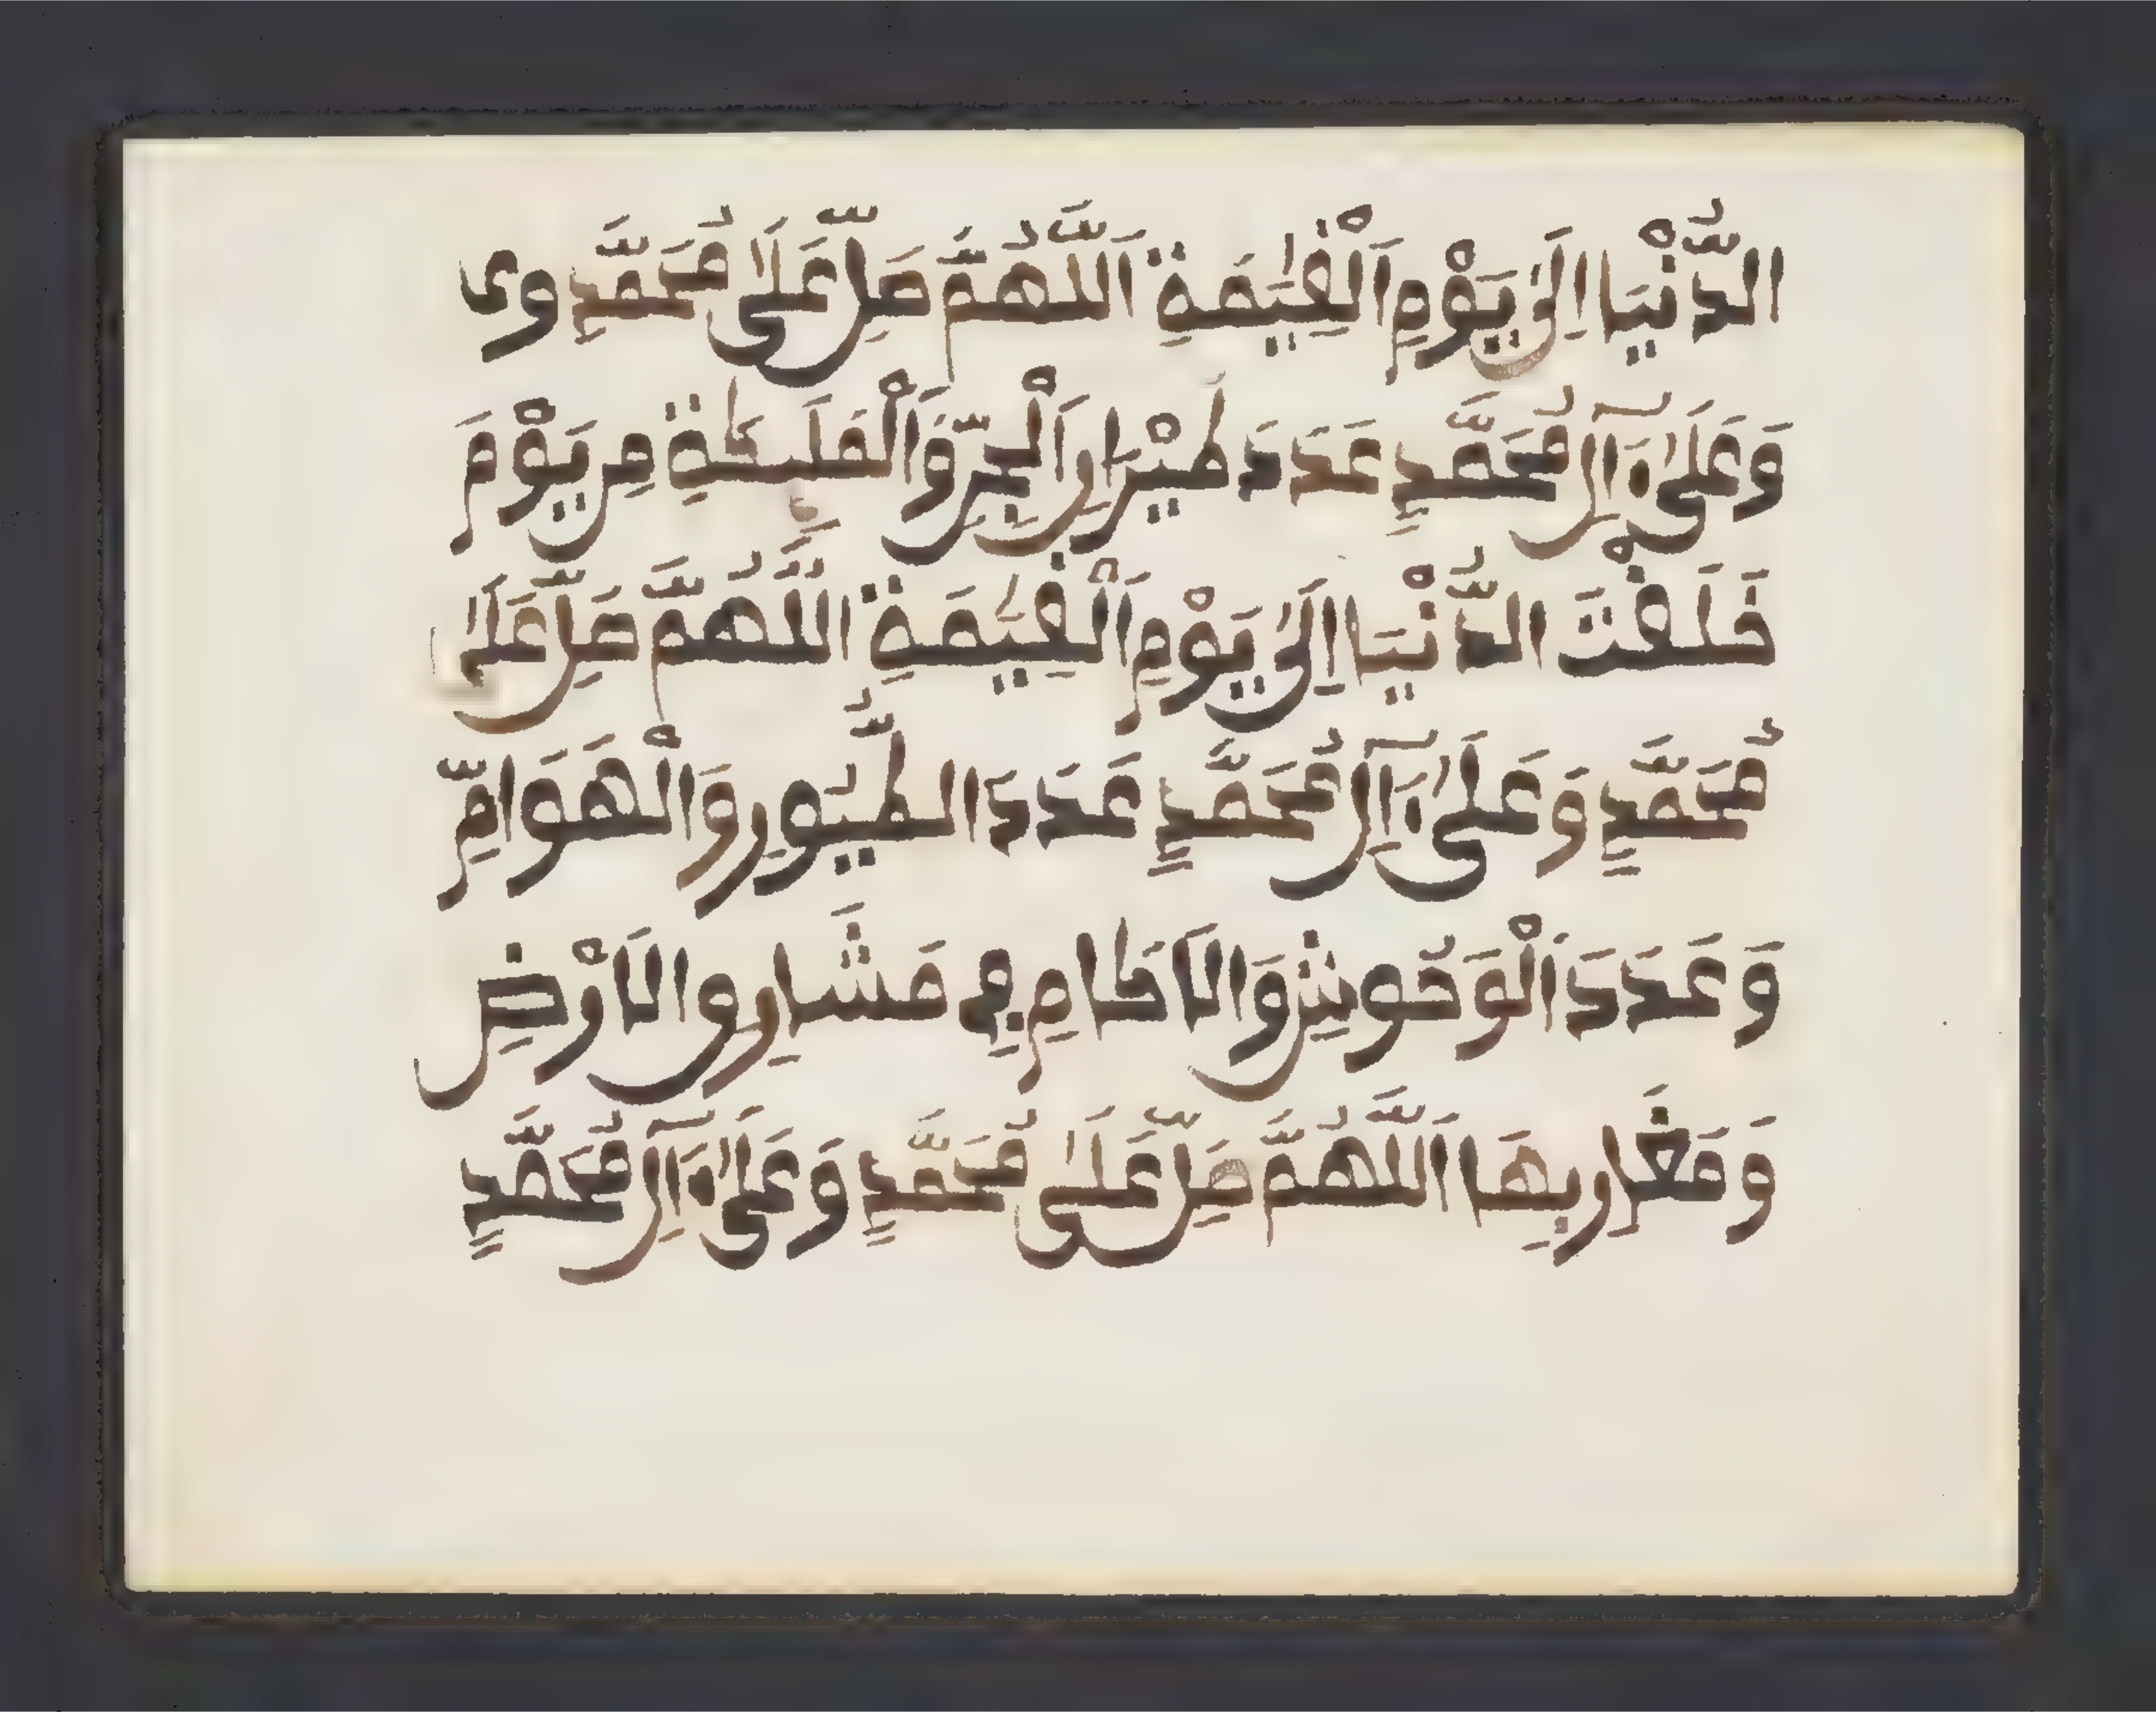 الدُّنْيَا اِلَىٰ يَوْمِ اَلْقِيَٰمَةِ اَللَّهُمَّ صَلِّ عَلَىٰ مُحَمَّدٍ وى
وَعَلَىٰ ءَالِ مُحَمَّدٍ عَدَدَ طَيْرَانِ اَلْجِنِّ وَاَلْمَلَٰٓئِكَةِ مِن يَوْمَ
خَلَقْتَ الدُّنْيَا اِلَىٰ يَوْمِ اَلْقِيَٰمَةِ اللَّهُمَّ صَلِّ عَلَىٰ
مُحَمَّدٍ وَعَلَىٰ ءَالِ مُحَمَّدٍ عَدَدَ الطُّيُورِ وَالْهَوَامِّ
وَعَدَدَ اَلْوُحُوشِ وَالَاكَامِ فِي مَشَارِقِ الَارْضِ
وَمَغَارِبِهَا اَللَّهُمَّ صَلِّ عَلَىٰ مُحَمَّدٍ وَعَلَىٰ ءَالِ مُحَمَّدٍ